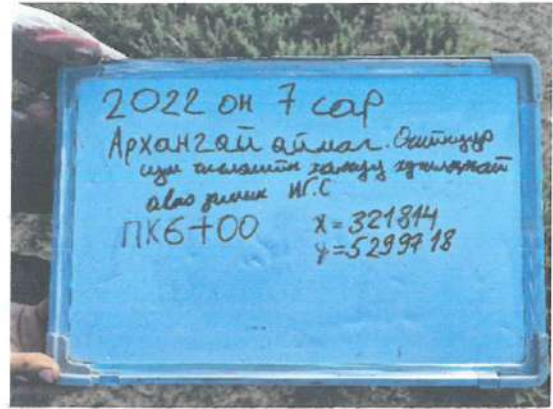 2022 он 7 сар
Архангай аймаг. Өгийнуур
сум
авто зам ИГС
ПК6+00 X=321814
y=5299718